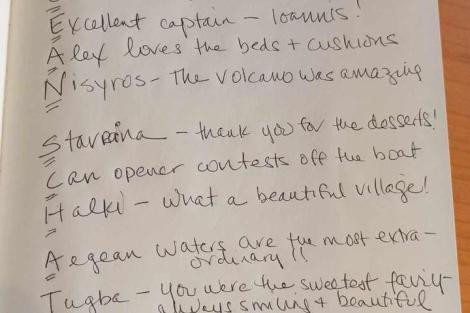 Excellent captain - Ioannis!
Alex loves the beds + cushions
Nisyros - The volcano was amazing
Stavrina - thank you for the desserts!
Can opener contests off the boat
Halki - what a beautiful village!
Aegean waters are the most extra-
ordinary!!
Tugba - you were the sweetest fairy -
always smiling + beautiful